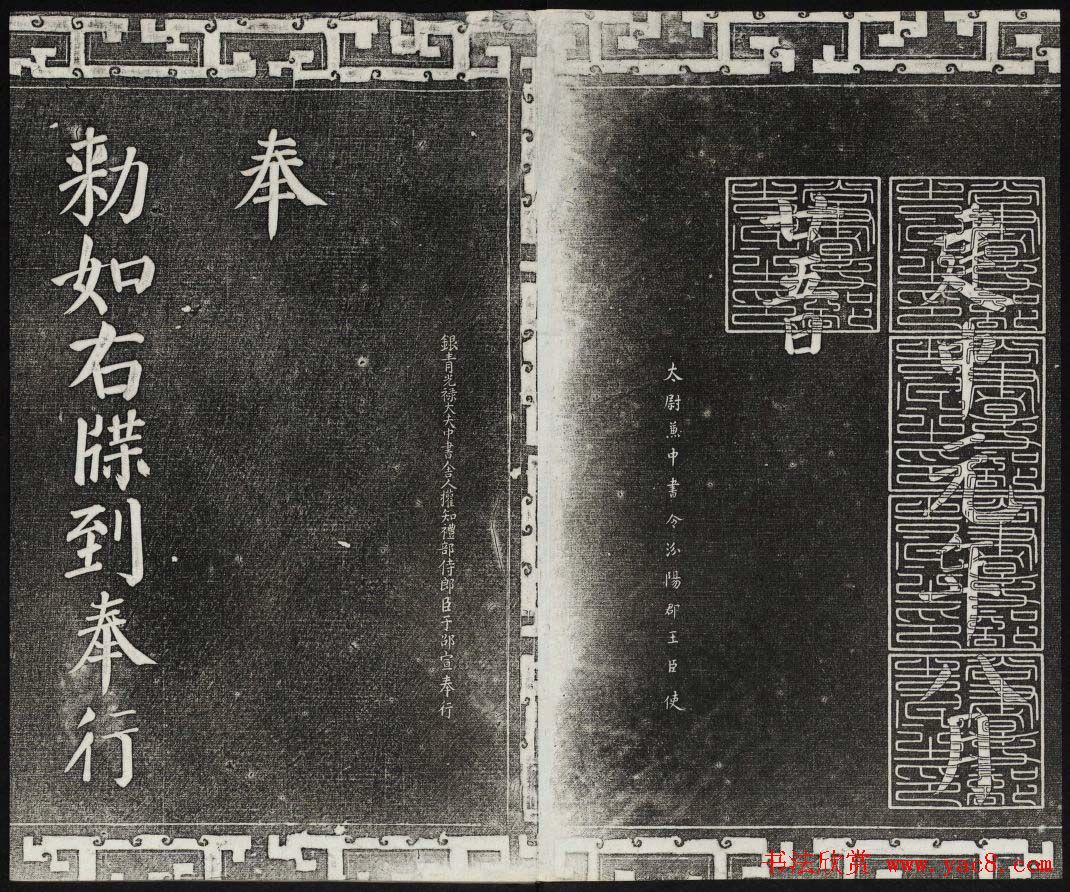 建中元年八月
廿五日
太尉兼中書令汾陽郡王臣使
銀青光祿大夫中書舍人權知禮部侍郎臣于邵宣奉行
奉
勑如右牒到奉行
书法欣赏 www.yac8.com